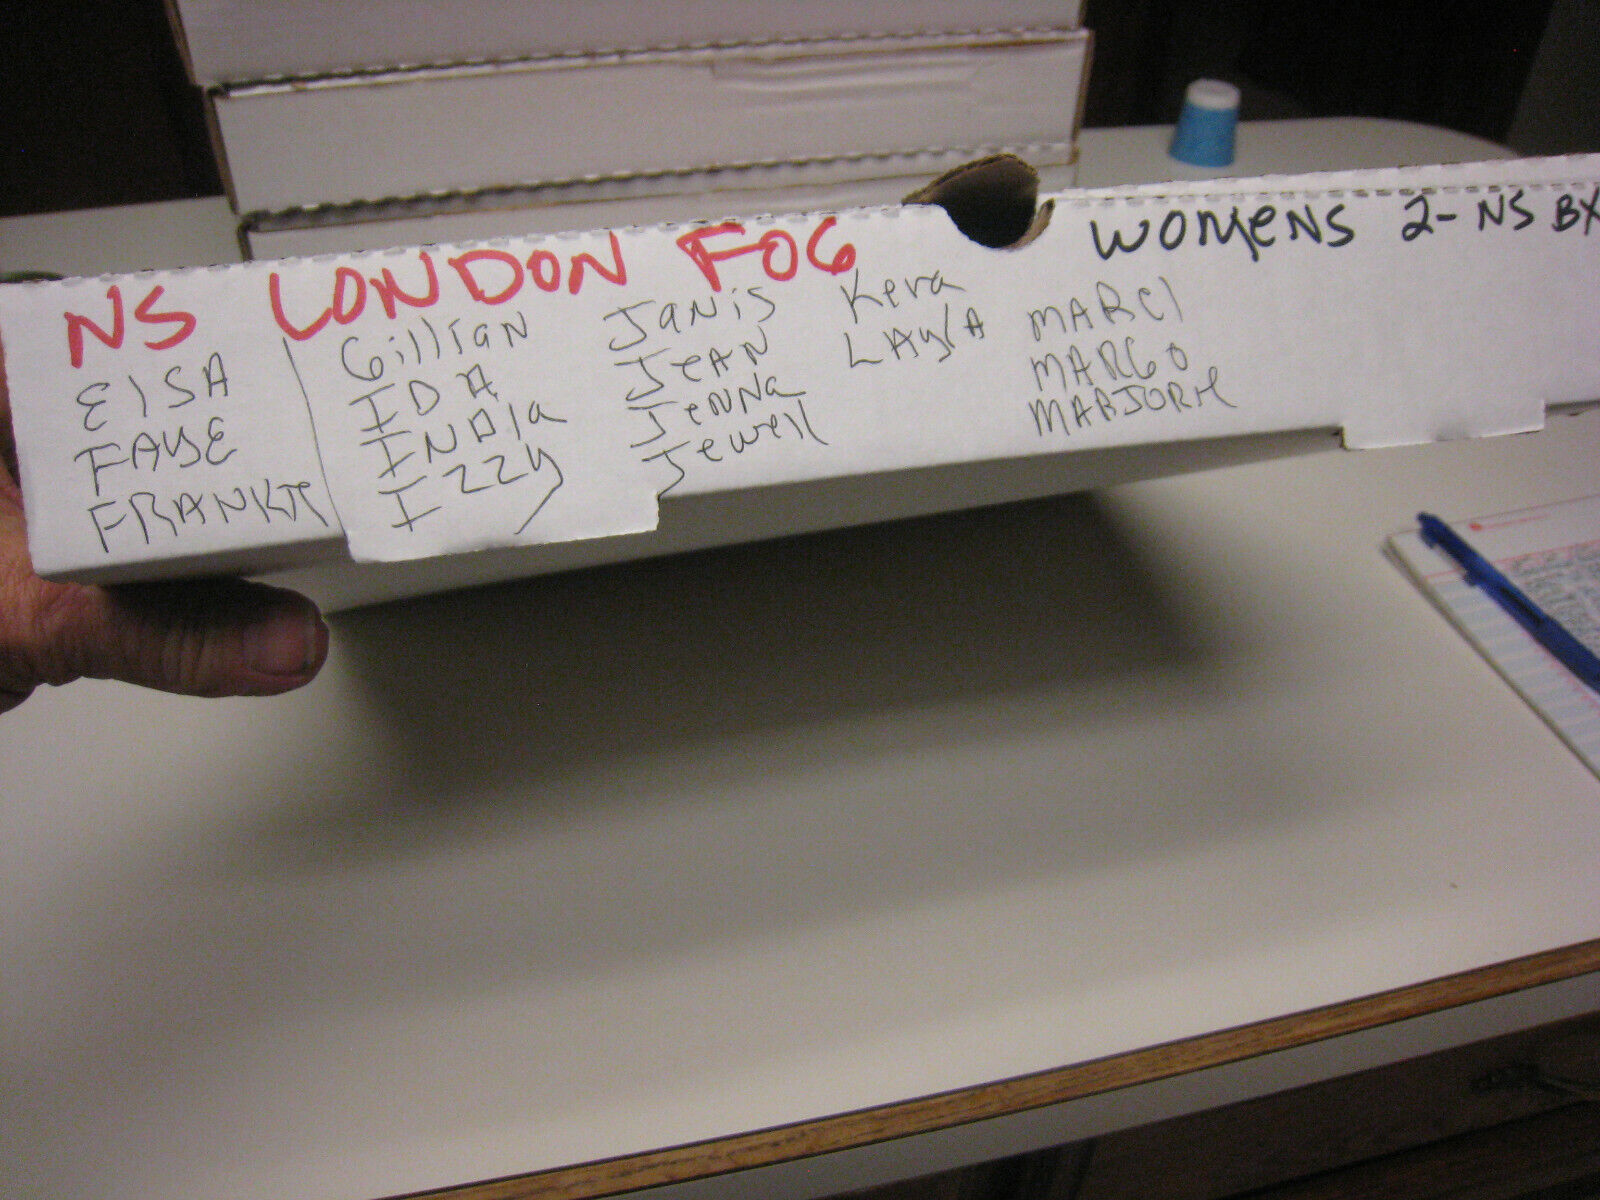 NS LONDON FOG
WOMENS 2-NS BX
ElSA
FAYE
FRANKIE
Gillian
IDA
INDIa
IZZY
JaNiS
JeAN
JeNNa
Jewell
Kera
LAylA
MARCI
MARGO
MARJORIE